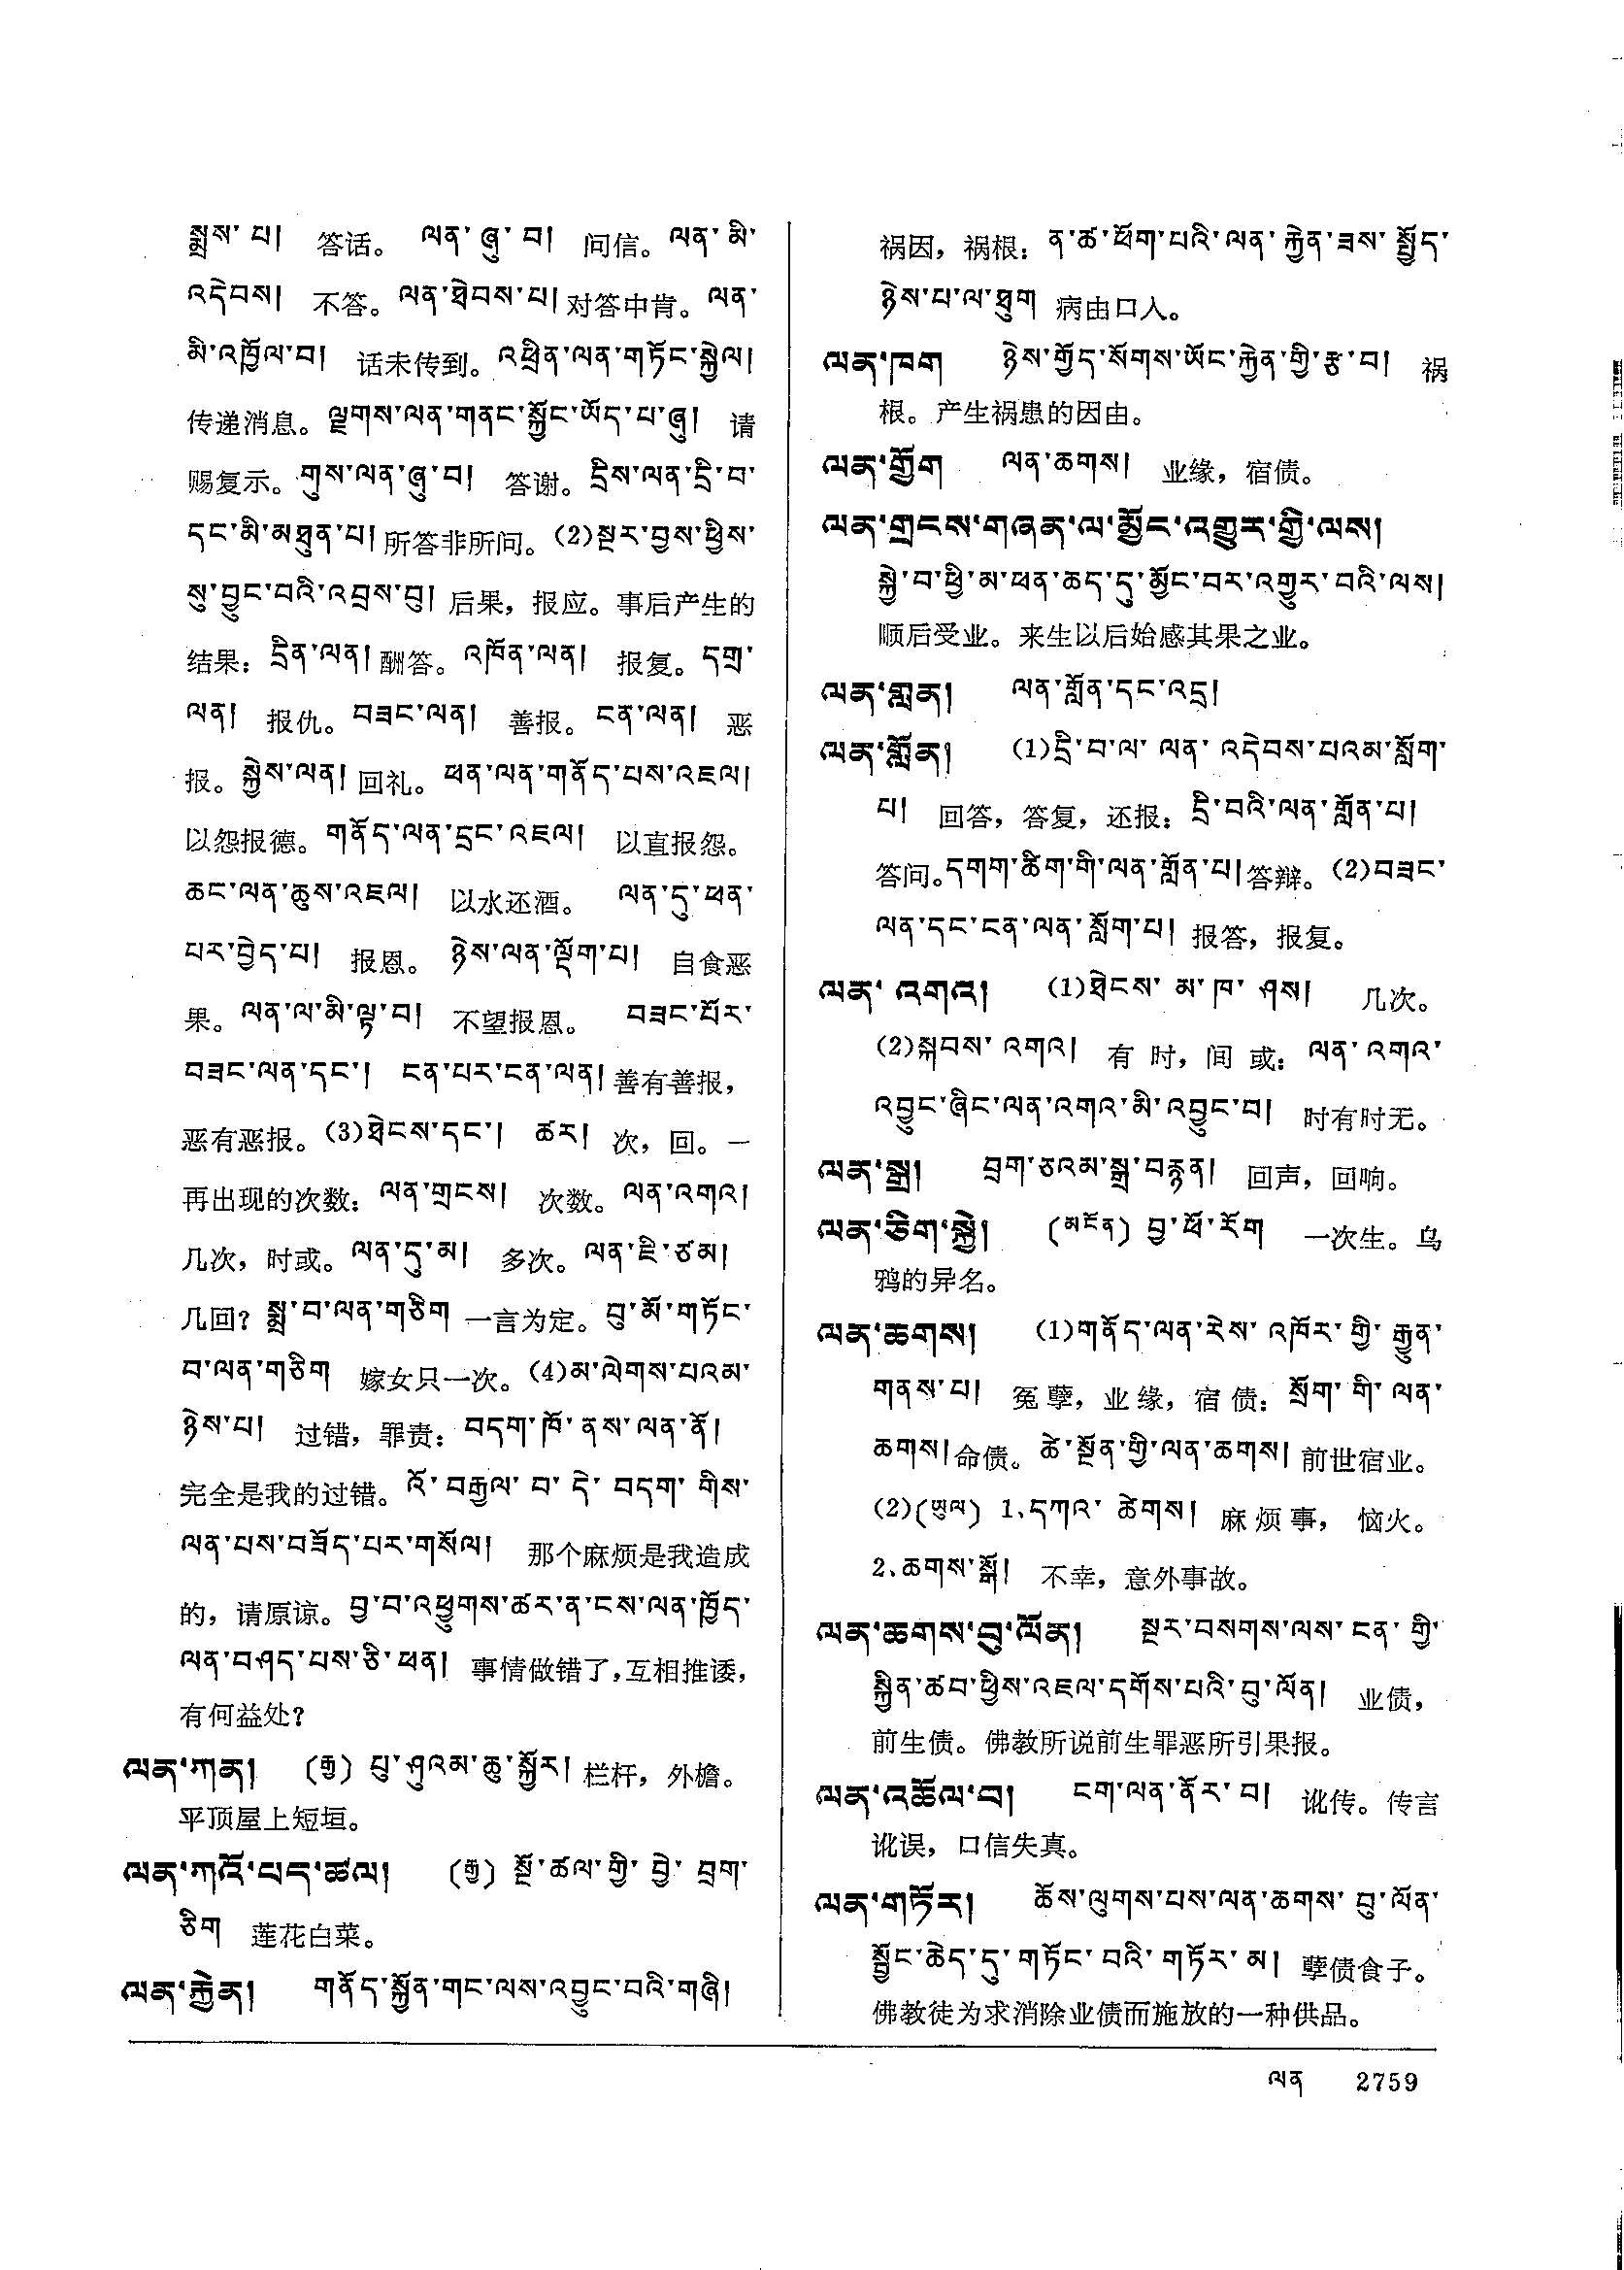 སྨྲས་པ། 答话。 ལན་ཞུ་བ། 问信。ལན་མི་
འདེབས། 不答。ལན་ཐེབས་པ། 对答中肯。ལན་
མི་འཁྱོལ་བ། 话未传到。འཕྲིན་ལན་གཏོང་སྐྱེལ།
传递消息。ལྗགས་ལན་གནང་སྐྱོང་ཡོད་པ་ཞུ། 请
赐复示。གུས་ལན་ཞུ་བ། 答谢。དྲིས་ལན་དྲི་བ་
དང་མི་མཐུན་པ། 所答非所问。(2)སྔར་བྱས་ཕྱིས་
སུ་བྱུང་བའི་འབྲས་བུ། 后果，报应。事后产生的
结果：དྲིན་ལན། 酬答。འཁོན་ལན། 报复。དགྲ་
ལན། 报仇。བཟང་ལན། 善报。ངན་ལན། 恶
报。སྐྱེས་ལན། 回礼。ཕན་ལན་གནོད་པས་འཇལ།
以怨报德。གནོད་ལན་དྲང་འཇལ། 以直报怨。
ཆང་ལན་ཆུས་འཇལ། 以水还酒。 ལན་དུ་ཕན་
པར་བྱེད་པ། 报恩。 ཉེས་ལན་ལྡོག་པ། 自食恶
果。ལན་ལ་མི་ལྟ་བ། 不望报恩。 བཟང་པོར་
བཟང་ལན་དང་། ངན་པར་ངན་ལན། 善有善报，
恶有恶报。(3)ཐེངས་དང་། ཚར། 次，回。一
再出现的次数：ལན་གྲངས། 次数。ལན་འགའ།
几次，时或。ལན་དུ་མ། 多次。ལན་ཇི་ཙམ།
几回？སྨྲ་བ་ལན་གཅིག 一言为定。བུ་མོ་གཏོང་
བ་ལན་གཅིག 嫁女只一次。(4)མ་ལེགས་པའམ་
ཉེས་པ། 过错，罪责：བདག་ཁོ་ནས་ལན་ནོ།
完全是我的过错。འོ་བརྒྱལ་བ་དེ་བདག་གིས་
ལན་པས་བཟོད་པར་གསོལ། 那个麻烦是我造成
的，请原谅。བྱ་བ་འཕྱུགས་ཚར་ན་ངས་ལན་ཁྱོད་
ལན་བཤད་པས་ཅི་ཕན། 事情做错了，互相推诿，
有何益处？
ལན་ཀན། (རྒྱ) པུ་ཤུའམ་ཆུ་སྐྱོར། 栏杆，外檐。
平顶屋上短垣。
ལན་ཀའོ་པད་ཚལ། (རྒྱ) སྔོ་ཚལ་གྱི་བྱེ་བྲག་
ཅིག 莲花白菜。
ལན་རྐྱེན། གནོད་སྐྱོན་གང་ལས་འབྱུང་བའི་གཞི།
祸因，祸根：ན་ཚ་ཕོག་པའི་ལན་རྐྱེན་ཟས་སྤྱོད་
ཉེས་པ་ལ་ཐུག 病由口入。
ལན་ཁག ཉེས་གྱོད་སོགས་ཡོང་རྐྱེན་གྱི་རྩ་བ། 祸
根。产生祸患的因由。
ལན་གྱོག ལན་ཆགས། 业缘，宿债。
ལན་གྲངས་གཞན་ལ་མྱོང་འགྱུར་གྱི་ལས།
སྐྱེ་བ་ཕྱི་མ་ཕན་ཆད་དུ་མྱོང་བར་འགྱུར་བའི་ལས།
顺后受业。来生以后始感其果之业。
ལན་གླན། ལན་གློན་དང་འདྲ།
ལན་གློན། (1)དྲི་བ་ལ་ལན་འདེབས་པའམ་སློག་
པ། 回答，答复，还报：དྲི་བའི་ལན་གློན་པ།
答问。དགག་ཚིག་གི་ལན་གློན་པ། 答辩。(2)བཟང་
ལན་དང་ངན་ལན་སློག་པ། 报答，报复。
ལན་འགའ། (1)ཐེངས་མ་ཁ་ཤས། 几次。
(2)སྐབས་འགའ། 有时，间或：ལན་འགའ་
འབྱུང་ཞིང་ལན་འགའ་མི་འབྱུང་བ། 时有时无。
ལན་སྒྲ། བྲག་ཅའམ་སྒྲ་བརྙན། 回声，回响。
ལན་ཅིག་སྐྱེ། (མངོན) བྱ་ཕོ་རོག 一次生。乌
鸦的异名。
ལན་ཆགས། (1)གནོད་ལན་རེས་འཁོར་གྱི་རྒྱུན་
གནས་པ། 冤孽，业缘，宿债：སྲོག་གི་ལན་
ཆགས། 命债。ཚེ་སྔོན་གྱི་ལན་ཆགས། 前世宿业。
(2)(ཡུལ) 1.དཀའ་ཚེགས། 麻烦事，恼火。
2.ཆགས་སྒོ། 不幸，意外事故。
ལན་ཆགས་བུ་ལོན། སྔར་བསགས་ལས་ངན་གྱི་
སྐྱིན་ཚབ་ཕྱིས་འཇལ་དགོས་པའི་བུ་ལོན། 业债，
前生债。佛教所说前生罪恶所引果报。
ལན་འཚོལ་བ། ངག་ལན་ནོར་བ། 讹传。传言
讹误，口信失真。
ལན་གཏོར། ཆོས་ལུགས་པས་ལན་ཆགས་བུ་ལོན་
སྦྱོང་ཆེད་དུ་གཏོང་བའི་གཏོར་མ། 孽债食子。
佛教徒为求消除业债而施放的一种供品。
ལན 2759